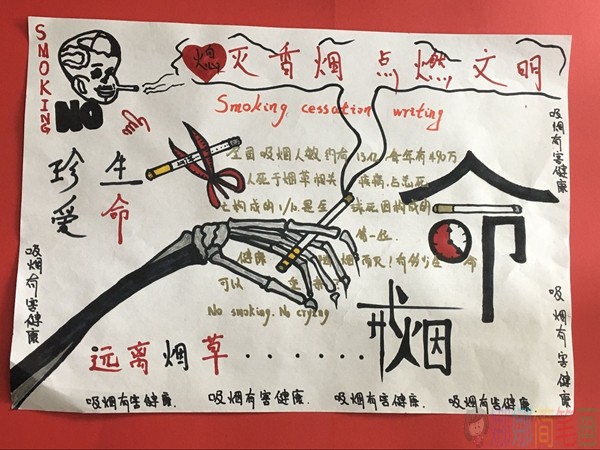 SMOKING
NO
熄灭香烟 点燃文明
Smoking cessation writing
珍爱
生命
全国吸烟人数约有13亿,每年有490万
人死于烟草相关疾病,占总死
亡构成的1/10.是全
球死因构成的
第一位.
健康
烟
有的
生命
可以
No smoking. No crying
命
戒烟
远离烟草......
吸烟有害健康
吸烟有害健康
吸烟有害健康
吸烟有害健康.
吸烟有害健康.
吸烟有害健康.
吸烟有害健康.
简笔画